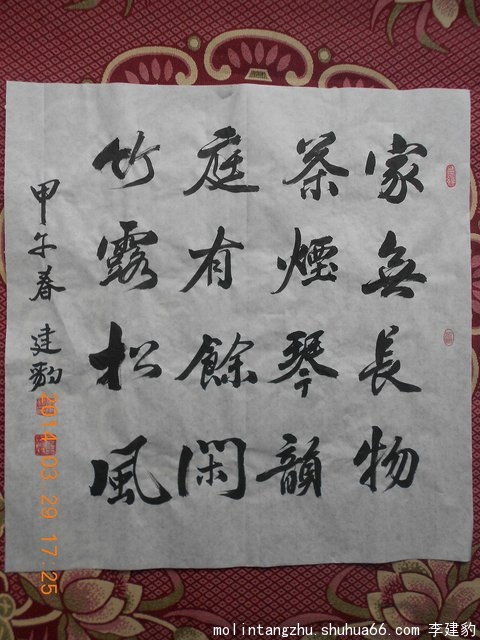 家無長物
茶煙琴韻
庭有餘閑
竹露松風
甲午春 建豹
2014 03 29 17:25
molintangzhu.shuhua66.com 李建豹